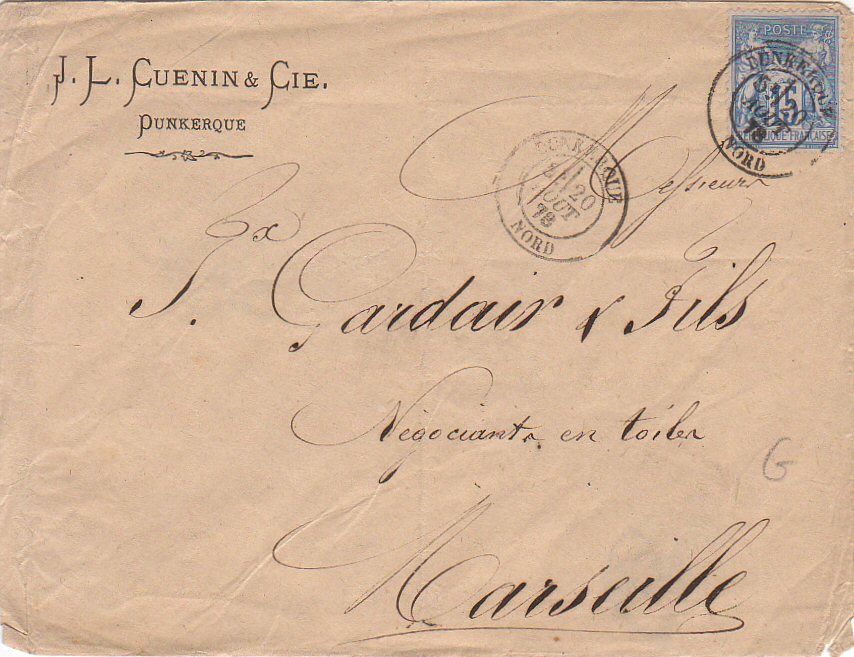 J. L. CUENIN & CIE.
DUNKERQUE
POSTE
15
REPUBLIQUE FRANCAISE
DUNKERQUE
20
AOUT
78
NORD
DUNKERQUE
20
AOUT
78
NORD
Messieurs
J. Gardair & Fils
Négociants en toiles
Marseille
G